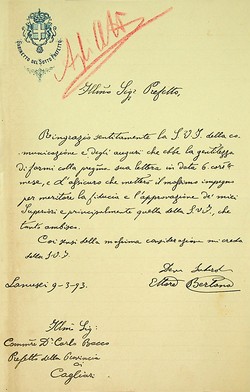 GABINETTO DEL SOTTO PREFETTO
Illmo Sig: Prefetto,
Ringrazio sentitamente la S.V.I. della co-
municazione e degli auguri che ebbe la gentilezza
di farmi colla pregina sua lettera in data 6 corr
mese, e L'assicuro che metterò il massimo impegno
per meritare la fiducia e l'approvazione de' miei
Superiori e principalmente quella della S.V.I., che
tanto ambisco.
Coi sensi della massima considerazione mi creda
della S.V.I.
Ettore Bertana
Lanusei 9-3-93.
Illmo Sig:
Comm Dr Carlo Bacco
Prefetto della Provincia
di
Cagliari